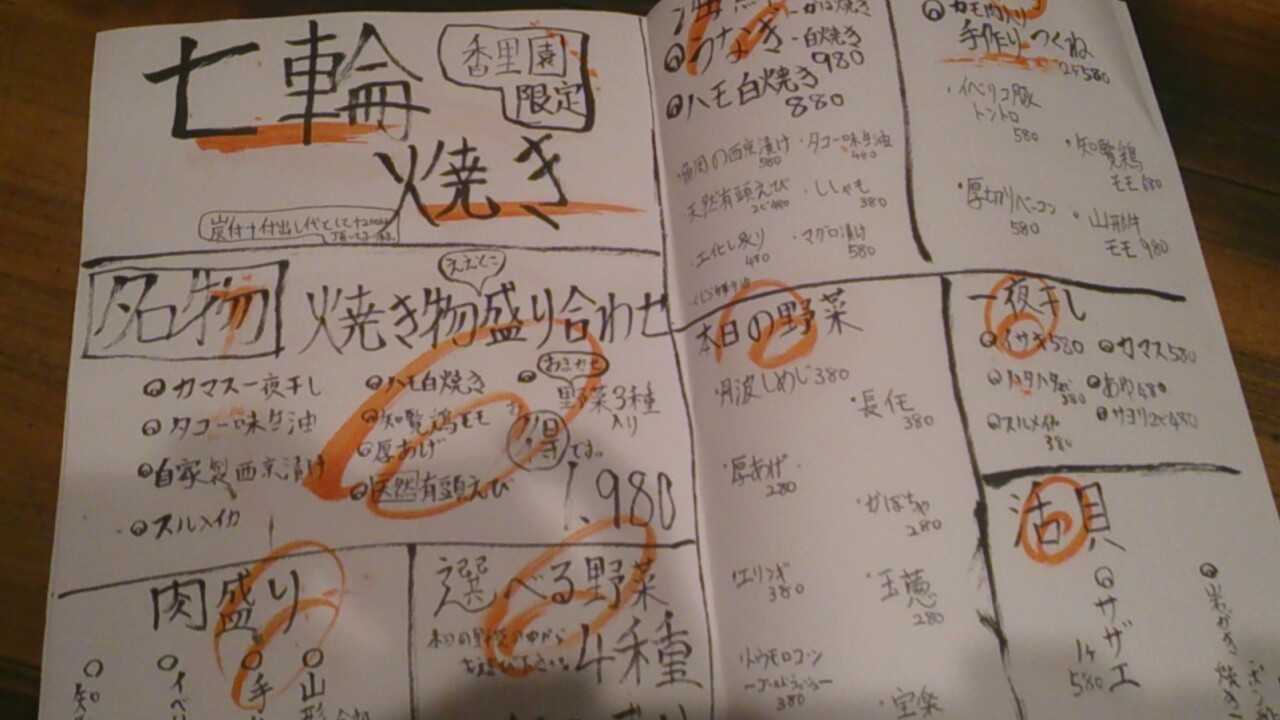 七輪
焼き
香里園
限定
名物
ええとこ
焼き物盛り合わせ
カマス一夜干し
タコ一味生油
自家製西京漬け
スルメイカ
ハモ白焼き
知覧鶏モモ
厚あげ
天然有頭えび
おまかせ
野菜3種
入り
です。
1,980
肉盛り
選べる野菜
4種
本日の野菜の中から
お選び下さい。
うなぎ-白焼き
980
ハモ白焼き
880
魚周の西京漬け
580
タコ一味生油
480
天然有頭えび
2ヶ480
ししゃも
380
480
マグロ漬け
580
カモ肉入り
手作りつくね
2ヶ580
イベリコ豚
トントロ
580
知覧鶏
モモ680
厚切りベーコン
580
山形牛
モモ980
本日の野菜
丹波しめじ380
長芋
380
厚あげ
280
かぼちゃ
280
エリンギ
380
玉葱
280
トウモロコシ
380
一夜干し
イサキ580
カマス580
ハタハタ
380
あゆ480
スルメイカ
380
サヨリ2ヶ480
活貝
サザエ
1ヶ
580
岩がき焼き